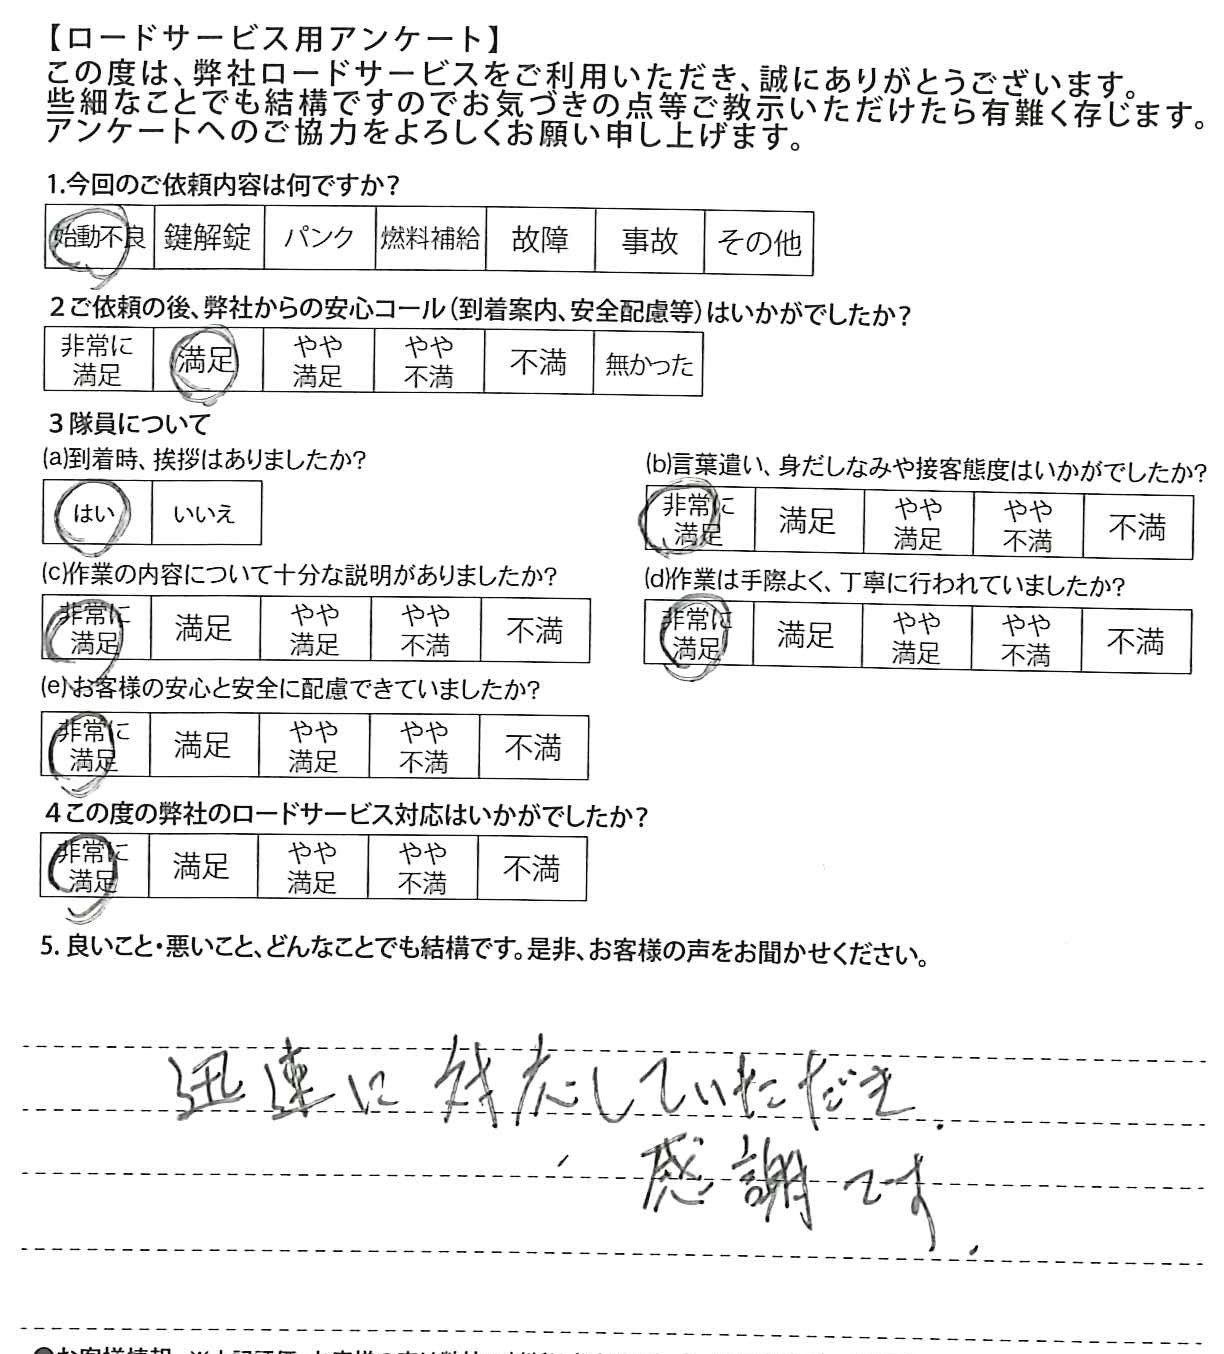 【ロードサービス用アンケート】
この度は、弊社ロードサービスをご利用いただき、誠にありがとうございます。
些細なことでも結構ですのでお気づきの点等ご教示いただけたら有難く存じます。
アンケートへのご協力をよろしくお願い申し上げます。
1.今回のご依頼内容は何ですか?
始動不良 鍵解錠 パンク 燃料補給 故障 事故 その他
2ご依頼の後、弊社からの安心コール(到着案内、安全配慮等)はいかがでしたか?
非常に満足 満足 やや満足 やや不満 不満 無かった
3隊員について
(a)到着時、挨拶はありましたか?
はい いいえ
(b)言葉遣い、身だしなみや接客態度はいかがでしたか?
非常に満足 満足 やや満足 やや不満 不満
(c)作業の内容について十分な説明がありましたか?
非常に満足 満足 やや満足 やや不満 不満
(d)作業は手際よく、丁寧に行われていましたか?
非常に満足 満足 やや満足 やや不満 不満
(e)お客様の安心と安全に配慮できていましたか?
非常に満足 満足 やや満足 やや不満 不満
4この度の弊社のロードサービス対応はいかがでしたか?
非常に満足 満足 やや満足 やや不満 不満
5. 良いこと・悪いこと、どんなことでも結構です。是非、お客様の声をお聞かせください。
迅速に対応していただき、
感謝です。